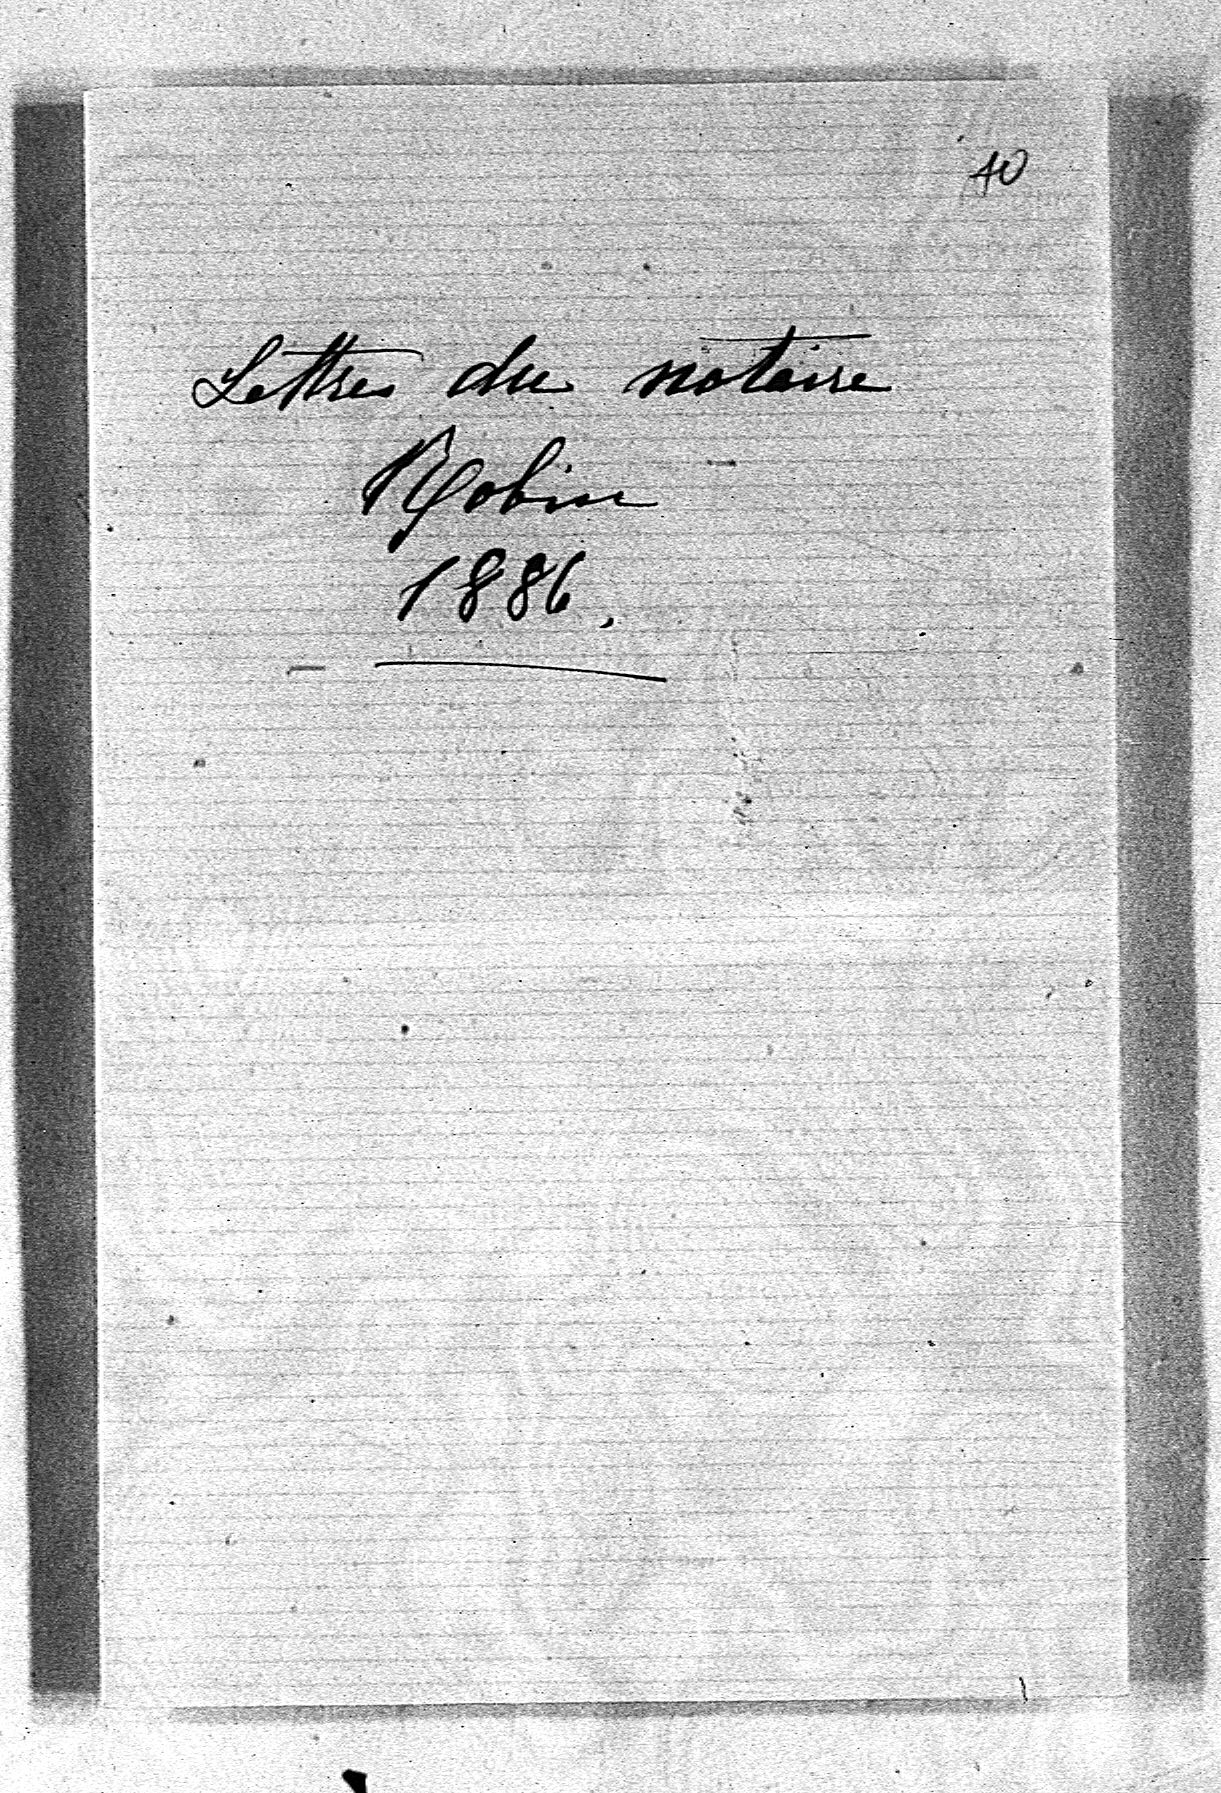 40
Lettres du notaire
Robin
1886.